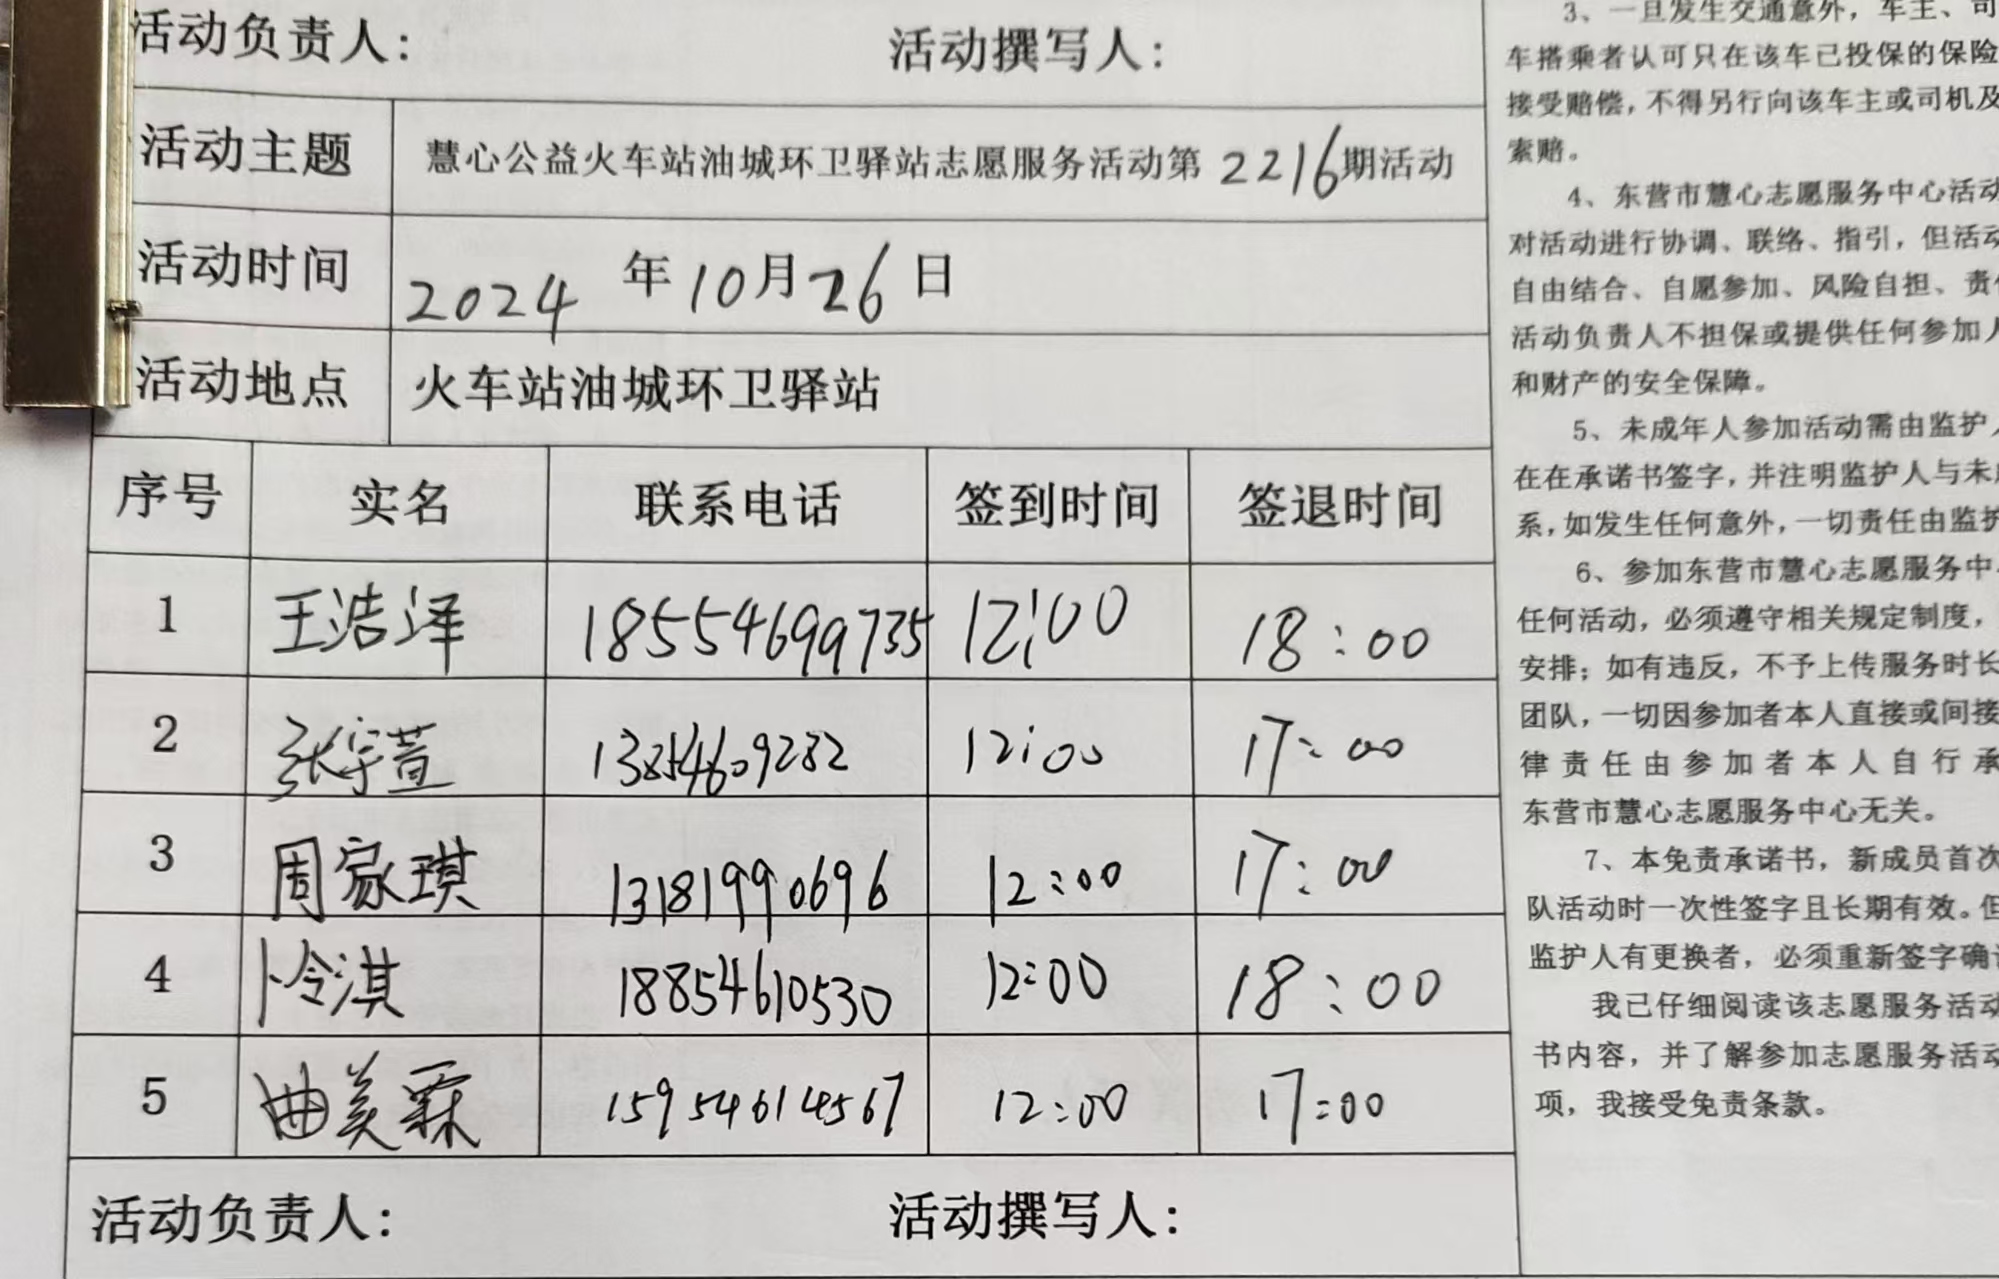 活动负责人： 活动撰写人：
活动主题 慧心公益火车站油城环卫驿站志愿服务活动第2216期活动
活动时间 2024年10月26日
活动地点 火车站油城环卫驿站
序号 实名 联系电话 签到时间 签退时间
1 王浩泽 18554699735 12:00 18:00
2 张宇萱 13854609282 12:00 17:00
3 周家琪 13181990696 12:00 17:00
4 卜冷淇 18854610530 12:00 18:00
5 曲美霖 15954614567 12:00 17:00
活动负责人： 活动撰写人：
3、一旦发生交通意外，车主、司
车搭乘者认可只在该车已投保的保险
接受赔偿，不得另行向该车主或司机及
索赔。
4、东营市慧心志愿服务中心活动
对活动进行协调、联络、指引，但活动
自由结合、自愿参加、风险自担、责
活动负责人不担保或提供任何参加人
和财产的安全保障。
5、未成年人参加活动需由监护人
在在承诺书签字，并注明监护人与未
系，如发生任何意外，一切责任由监护
6、参加东营市慧心志愿服务中心
任何活动，必须遵守相关规定制度，
安排；如有违反，不予上传服务时长
团队，一切因参加者本人直接或间接
律责任由参加者本人自行承
东营市慧心志愿服务中心无关。
7、本免责承诺书，新成员首次
队活动时一次性签字且长期有效。但
监护人有更换者，必须重新签字确
我已仔细阅读该志愿服务活动
书内容，并了解参加志愿服务活动
项，我接受免责条款。